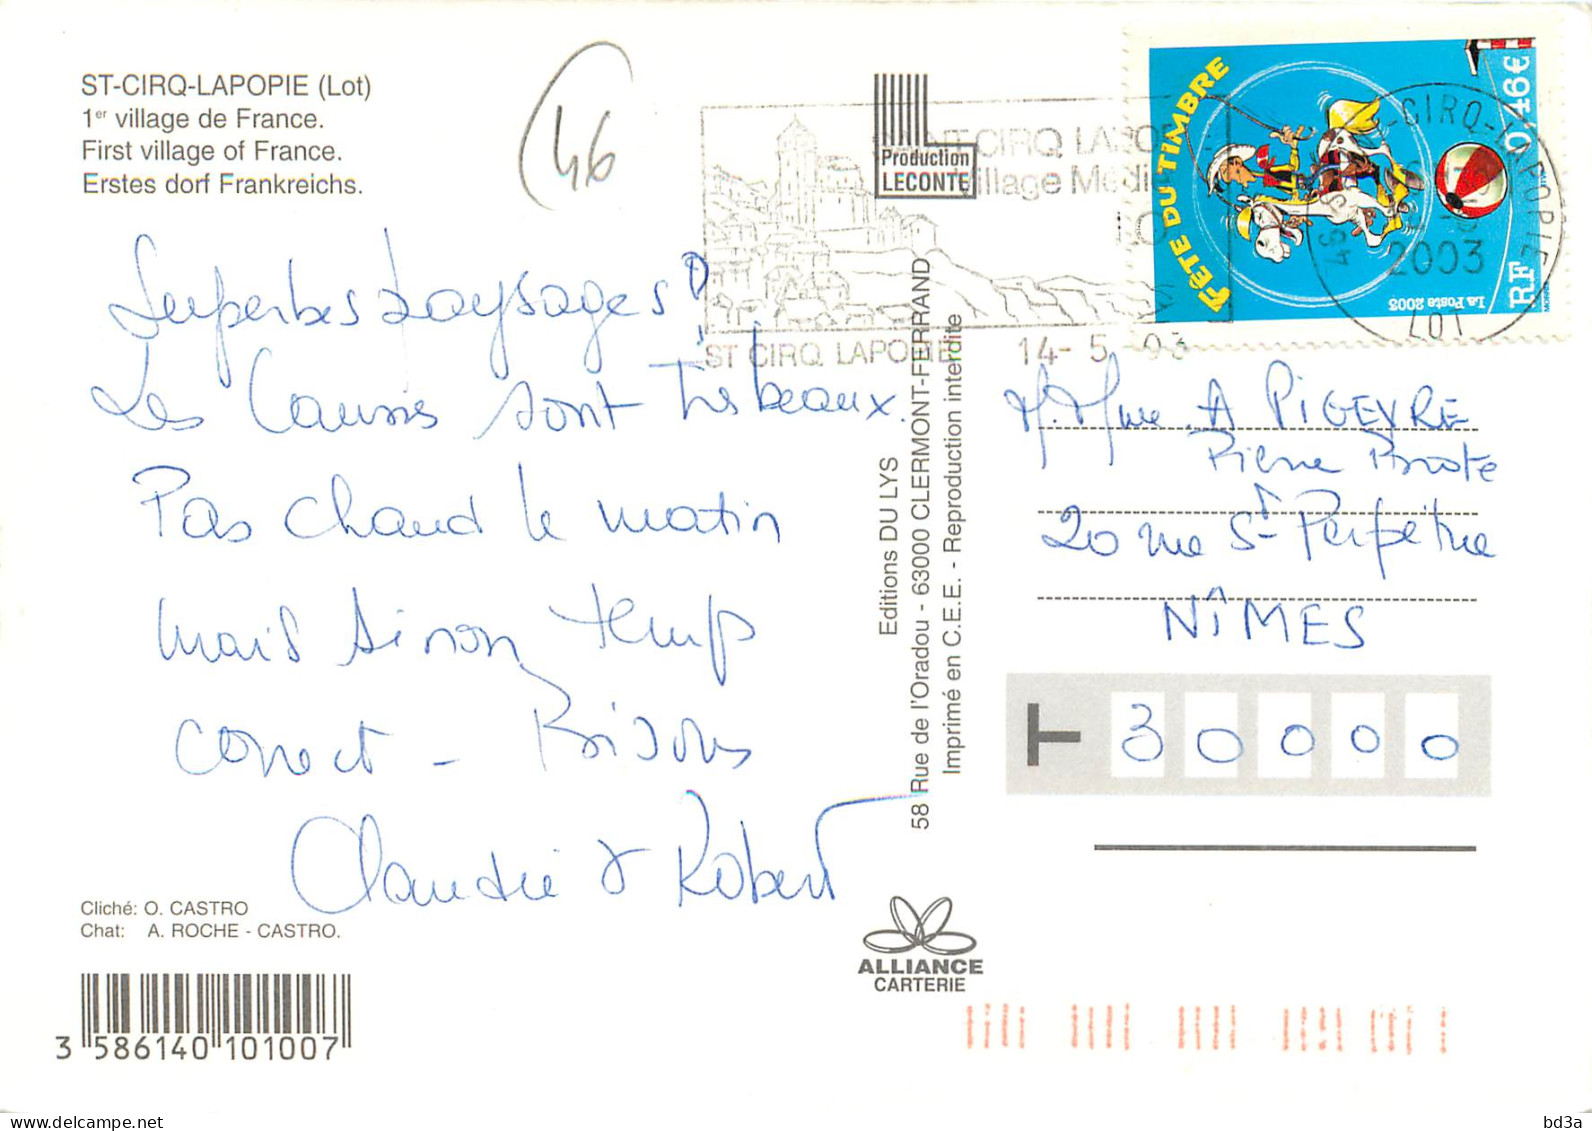 ST-CIRQ-LAPOPIE (Lot)
1er village de France.
First village of France.
Erstes dorf Frankreichs.
46
Superbes paysages !
Les Causses sont très beaux.
Pas chaud le matin
mais sinon temps
correct - Bisous
Claudie & Robert
Cliché: O. CASTRO
Chat: A. ROCHE - CASTRO.
3 586140 101007
Production
LECONTE
Editions DU LYS
58 Rue de l'Oradou - 63000 CLERMONT-FERRAND
Imprimé en C.E.E. - Reproduction interdite
ALLIANCE
CARTERIE
SAINT CIRQ LAPOPIE
Village
ST CIRQ LAPOPIE
14-5 03
FÊTE DU TIMBRE
0,46€
RF
La Poste 2003
46 ST-CIRQ-LAPOPIE
2003
LOT
M. Mme A PIGEYRE
Pierre
20 rue Ste Perpétue
NÎMES
30000